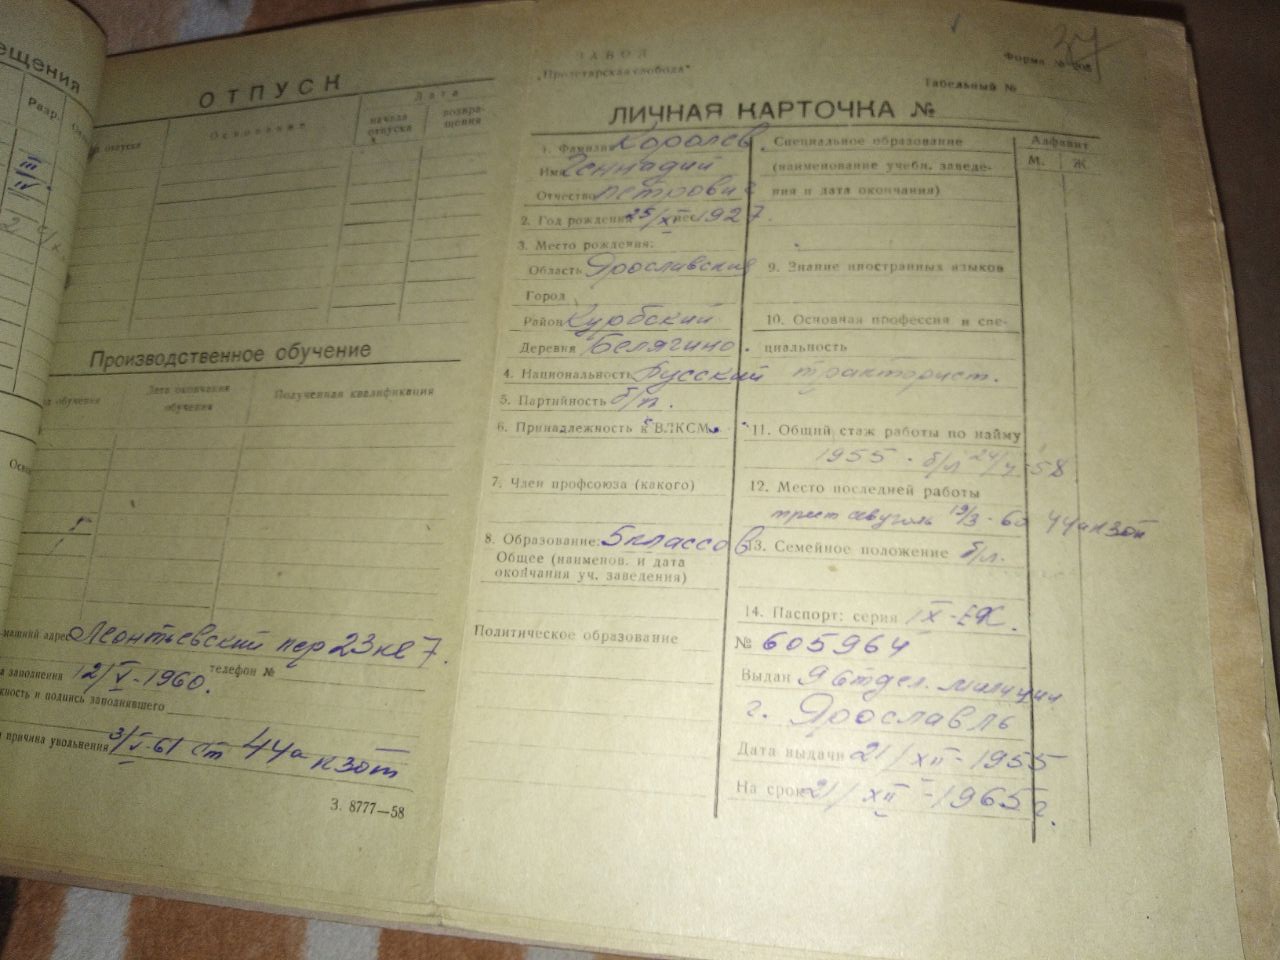 ещения
Разр.
III
IV
2
ОТПУСК
отпуска
Основание
Дата
начала отпуска
возвращения
Производственное обучение
обучения
Дата окончания обучения
Полученная квалификация
машний адрес Леонтьевский пер 23 кв 7.
заполнения 12/V-1960. телефон №
и подпись заполнявшего
причина увольнения 3/V-61 ст 44а кзот
З. 8777—58
37
ЗАВОД
„Пролетарская свобода"
Форма
Табельный №
ЛИЧНАЯ КАРТОЧКА №
1. Фамилия Королев.
Имя Геннадий
Отчество Петрович
2. Год рождения 25/XI мес 1927.
3. Место рождения:
Область Ярославская
Город
Район Курбский
Деревня Белягино.
4. Национальность Русский
5. Партийность б/п.
6. Принадлежность к ВЛКСМ
7. Член профсоюза (какого)
8. Образование: 5 классов
Общее (наименов. и дата
окончания уч. заведения)
Политическое образование
Специальное образование
(наименование учебн. заведе-
ния и дата окончания)
Алфавит
М.
Ж.
9. Знание иностранных языков
10. Основная профессия и спе-
циальность
тракторист.
11. Общий стаж работы по найму
1955 - б/л 24/V-58
12. Место последней работы
трест 19/3-60 44а кзот
13. Семейное положение
14. Паспорт: серия IX-ЕК.
№ 605964
Выдан 9 отдел. милиции
г. Ярославль
Дата выдачи 21/XII-1955
На срок 21/XII-1965 г.